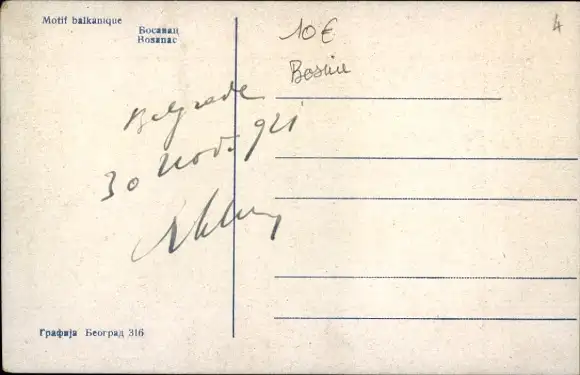 Motif balkanique
Босанац
Bosanac
10€
4
Bosnie
Belgrade
30 Nov. 921
Графија Београд 316